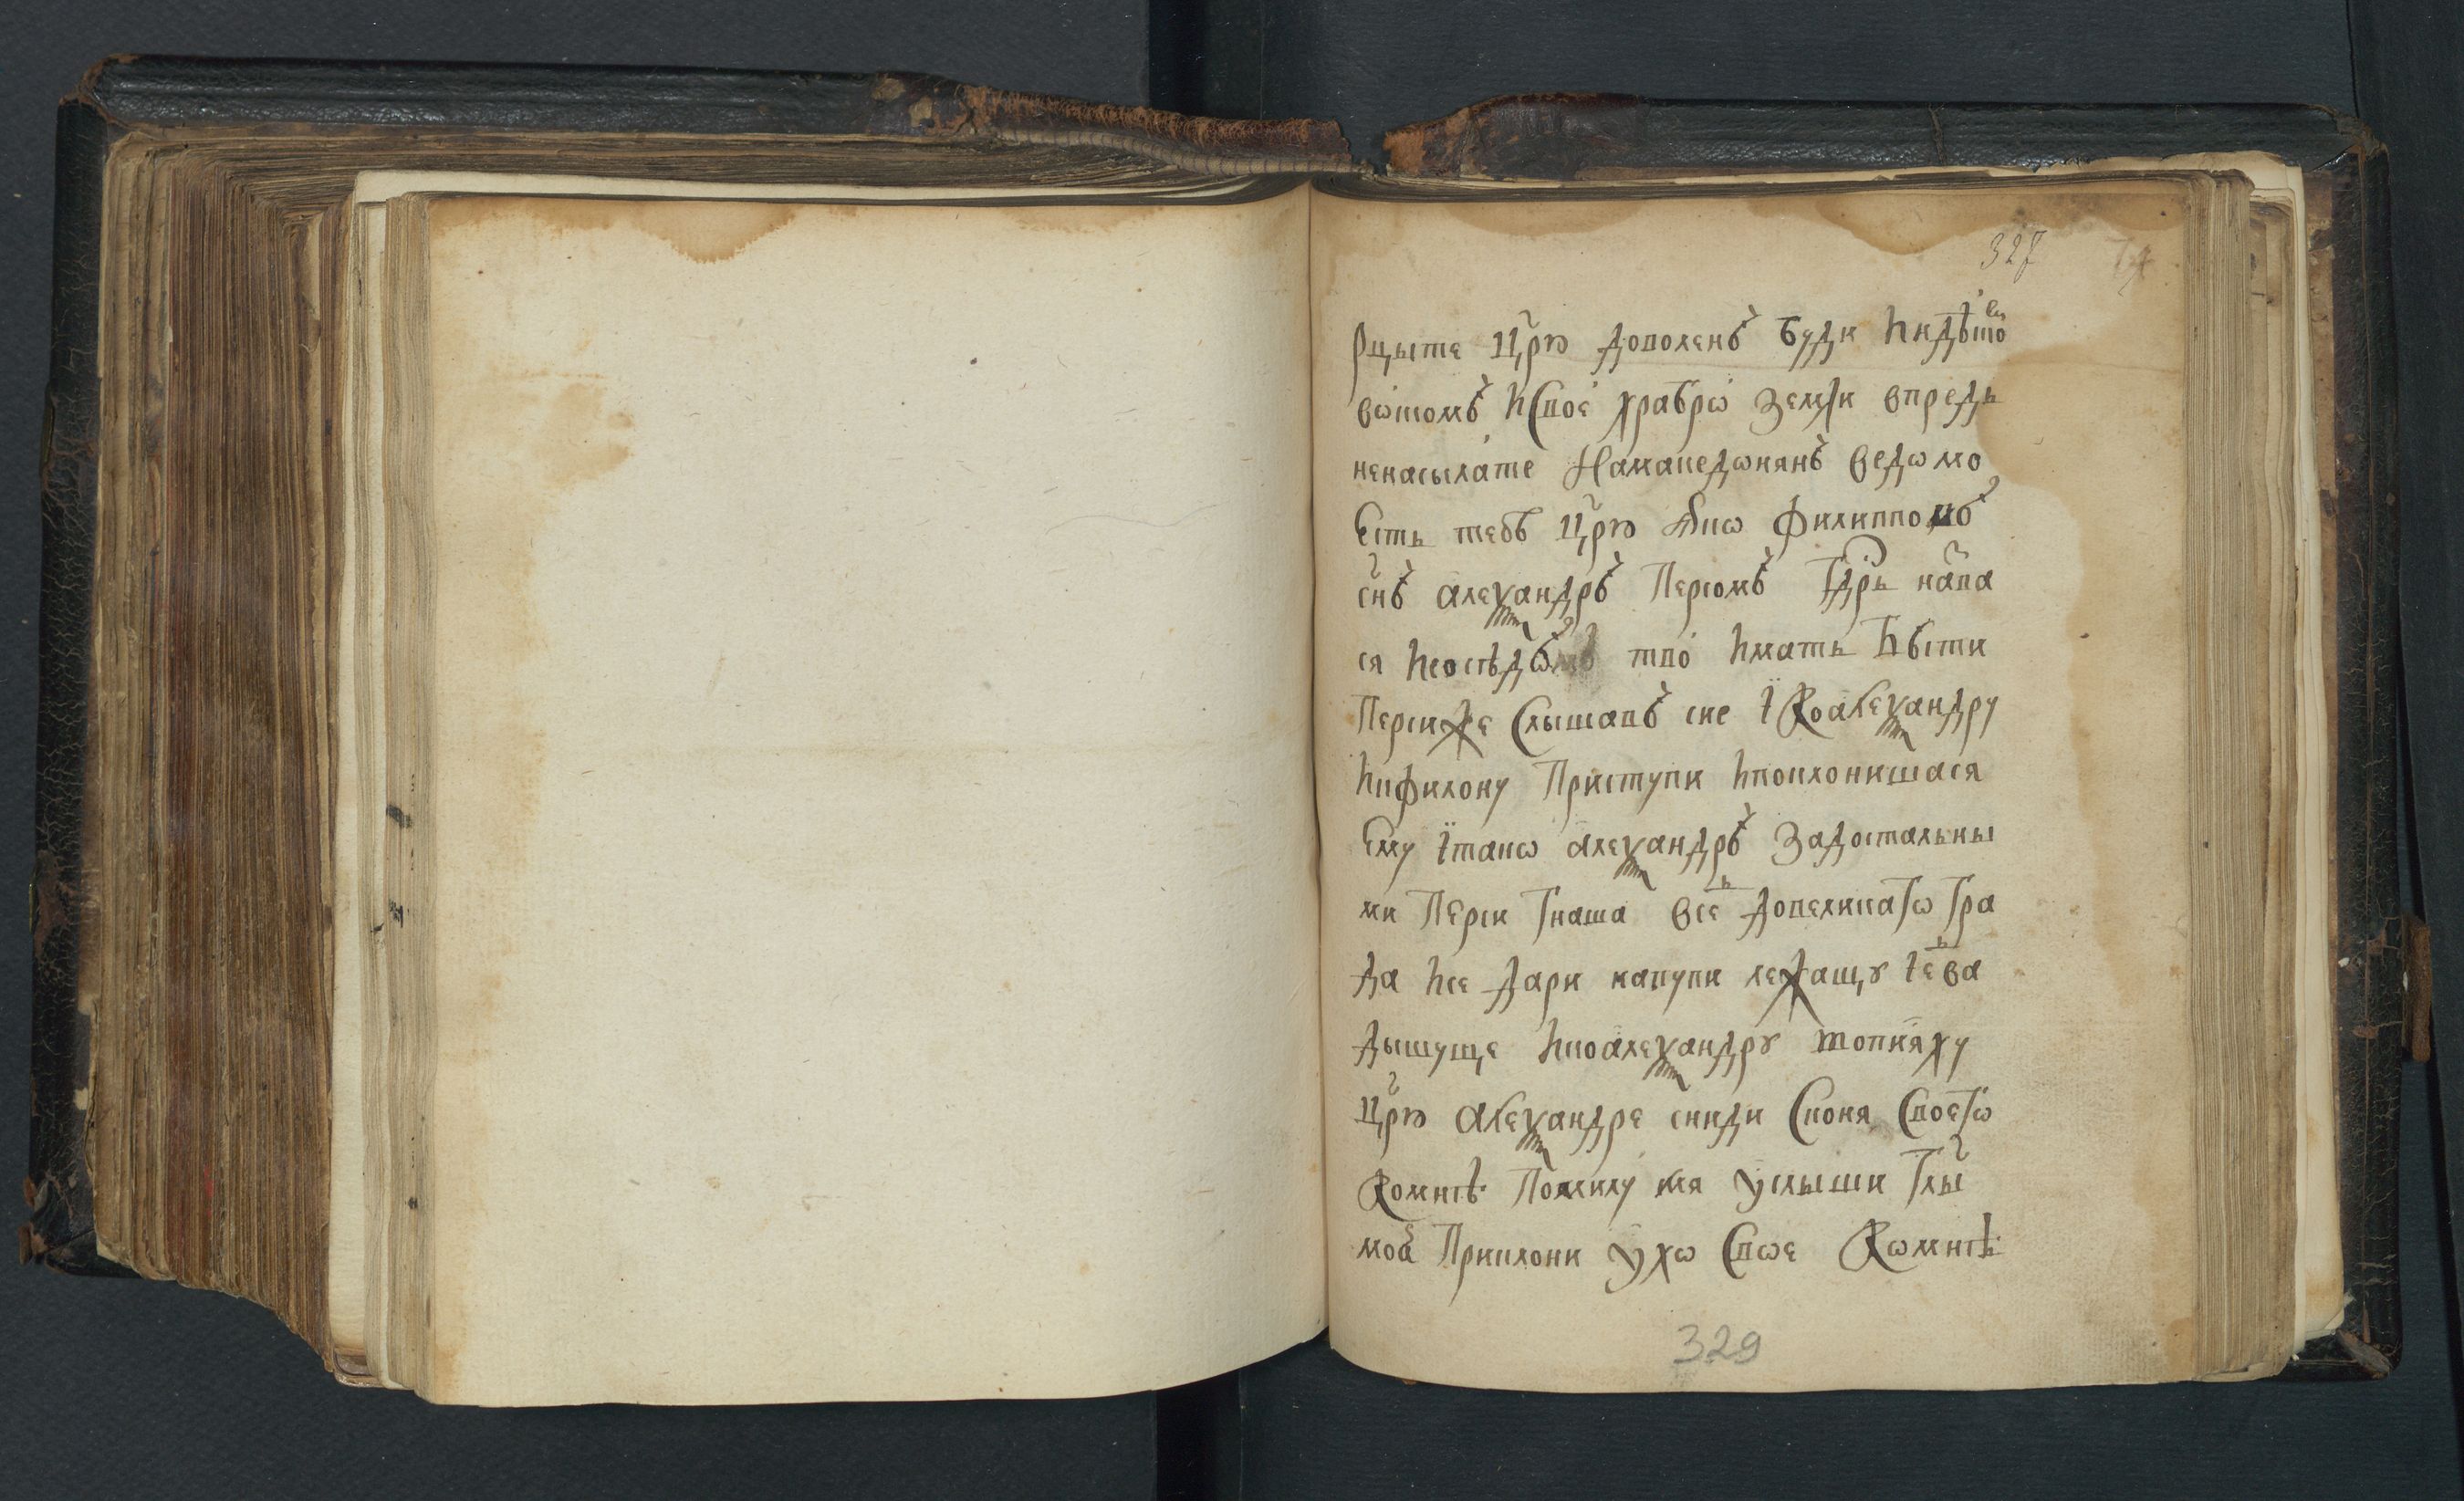 327 74
Рцыте црю доволенъ буди индѣисто
вѡтомъ исвоеи храбрѡи земли впредь
ненасылаите намакедѡнянъ ведѡмо
Есть тебѣ црю ꙗкѡ филипповъ
снъ алеѯандръ Персомъ гдрь назва
ся исосѣдѡмъ твои имать быти
Персиже слышавъ сие ї коалеѯандру
кифилону Приступи ипоклонишася
Ему їтакѡ алеѯандръ задостальны
ми Перси гнаша все довеликагѡ гра
да исе дари напути лежащꙋ їедва
дышуще икоалеѯандрꙋ вопиаху
црю алеѯандре сниди сконя своегѡ
комнѣ Помилуи мя услыши глы
моѧ Приклони ухѡ свѡе кѡмнѣ
329